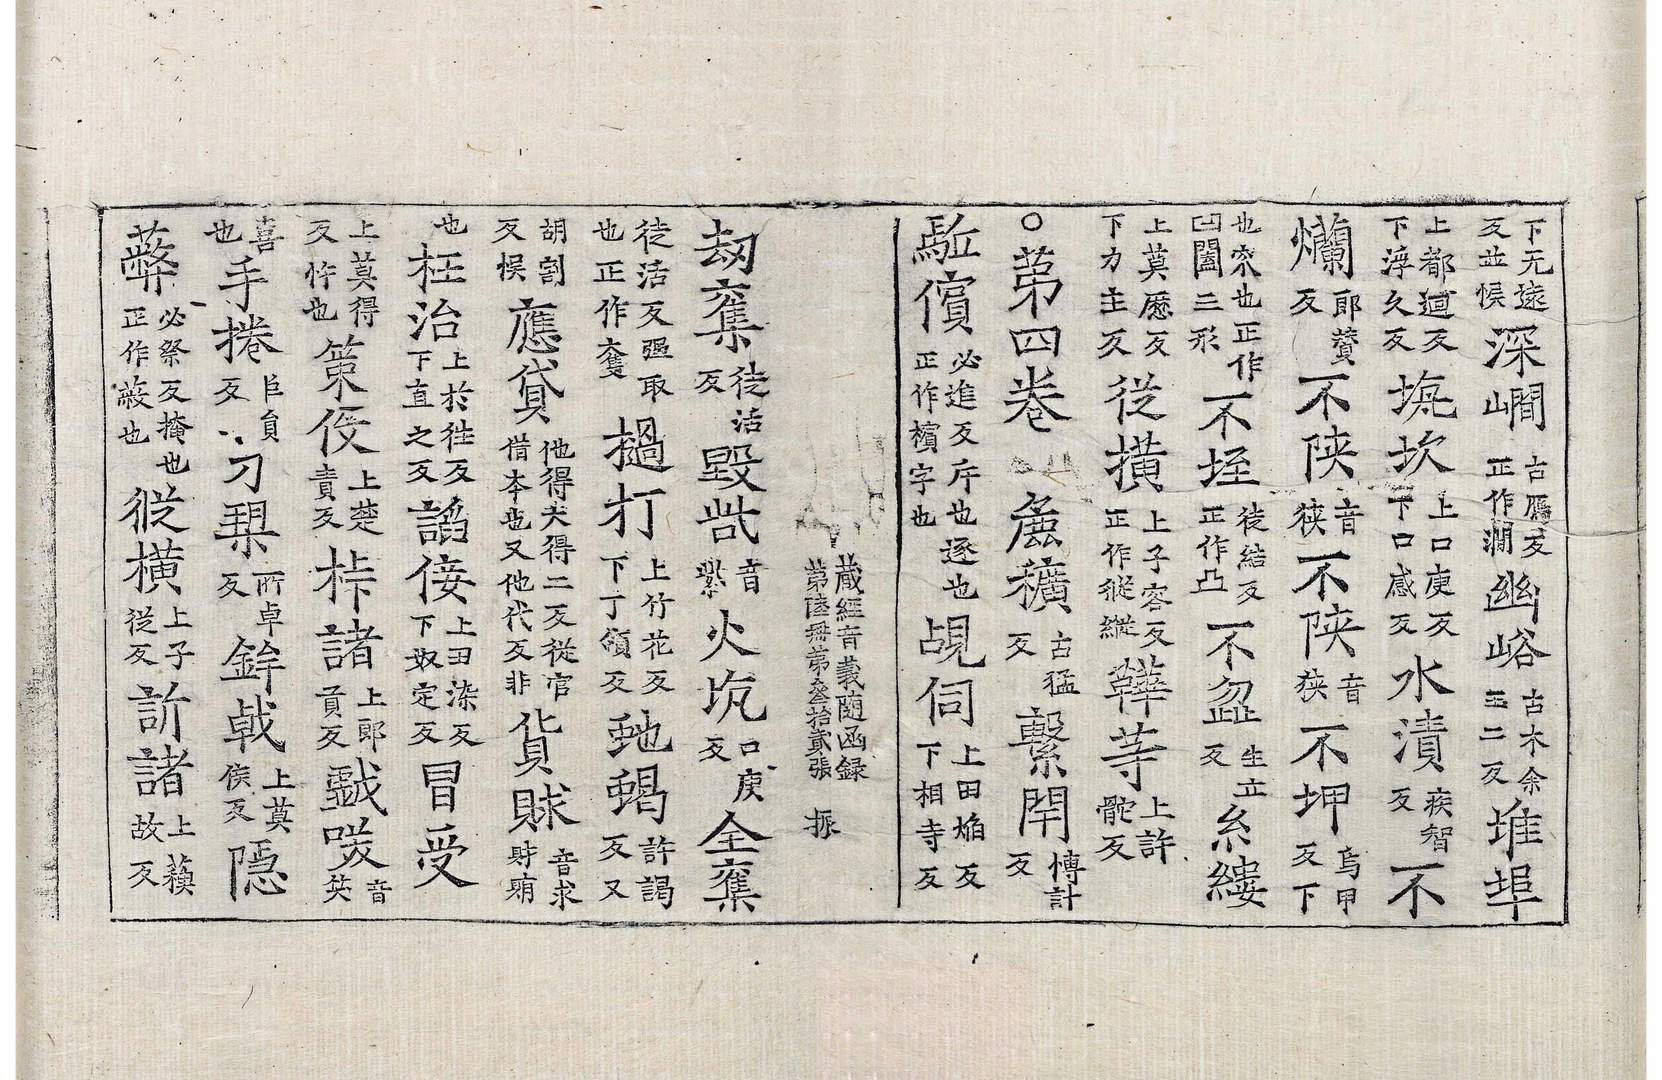 下无遠反並悮深㵎古鴈反正作澗幽峪古木余玉二反堆埠
上都迴反下淳久反塸坎上口庚反下口感反水漬疾智反不
爛郎贊反不陕音狭不陕音狭不坤烏甲反下
也宎也正作凹闔三形不垤徒結反正作凸不歰生立反糸縷
上莫厯反下力主反從擴上子容反正作縱縱鞾䓁上許䯾反
○第四卷麁穬古猛反繫閈愽計反
駈儐必進反斥也逐也正作擯字也覘伺上田焔反下相寺反
藏經音義隨函録
第陸冊第叁拾貳張 振
刼奪徒活反毀呰音紫火坑口庚反全奪
徒活反强取也正作奪撾打上竹花反下丁領反虵蝎許謁反又
胡割反悮應貸他得犬得二反從官借本也又他代反非貨賕音求財賄
也枉治上於往反下直之反諂佞上田淰反下奴定反冒受
上莫得反忤也策伇上楚責反桙諸上郎貢反戲𠵸音𠵸
喜也手捲巨貟反刁槊所卓反鉾戟上莫侯反隱
蔽必祭反掩也正作蔽也從橫上子從反訴諸上蘓故反